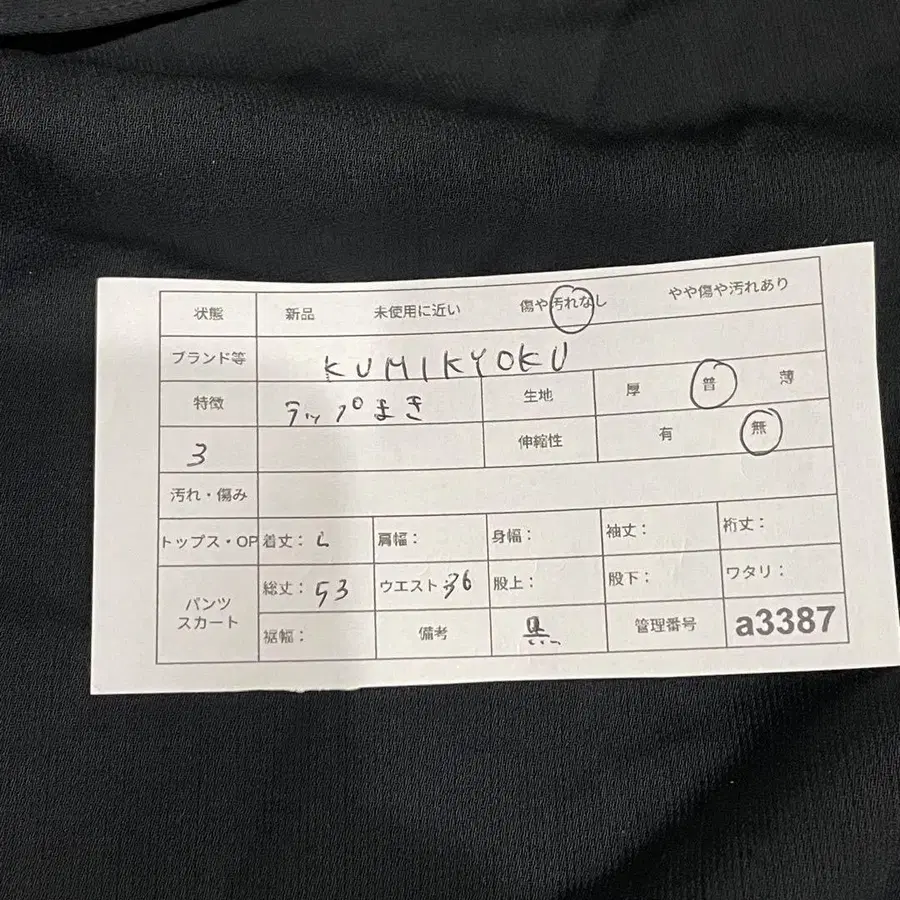 状態 新品 未使用に近い 傷や汚れなし やや傷や汚れあり
ブランド等 KUMIKYOKU
特徴 ラップまき 生地 厚 普 薄
3 伸縮性 有 無
汚れ・傷み
トップス・OP 着丈： 肩幅： 身幅： 袖丈： 裄丈：
パンツ スカート 総丈：53 ウエスト 36 股上： 股下： ワタリ：
裾幅： 備考 黒 管理番号 a3387